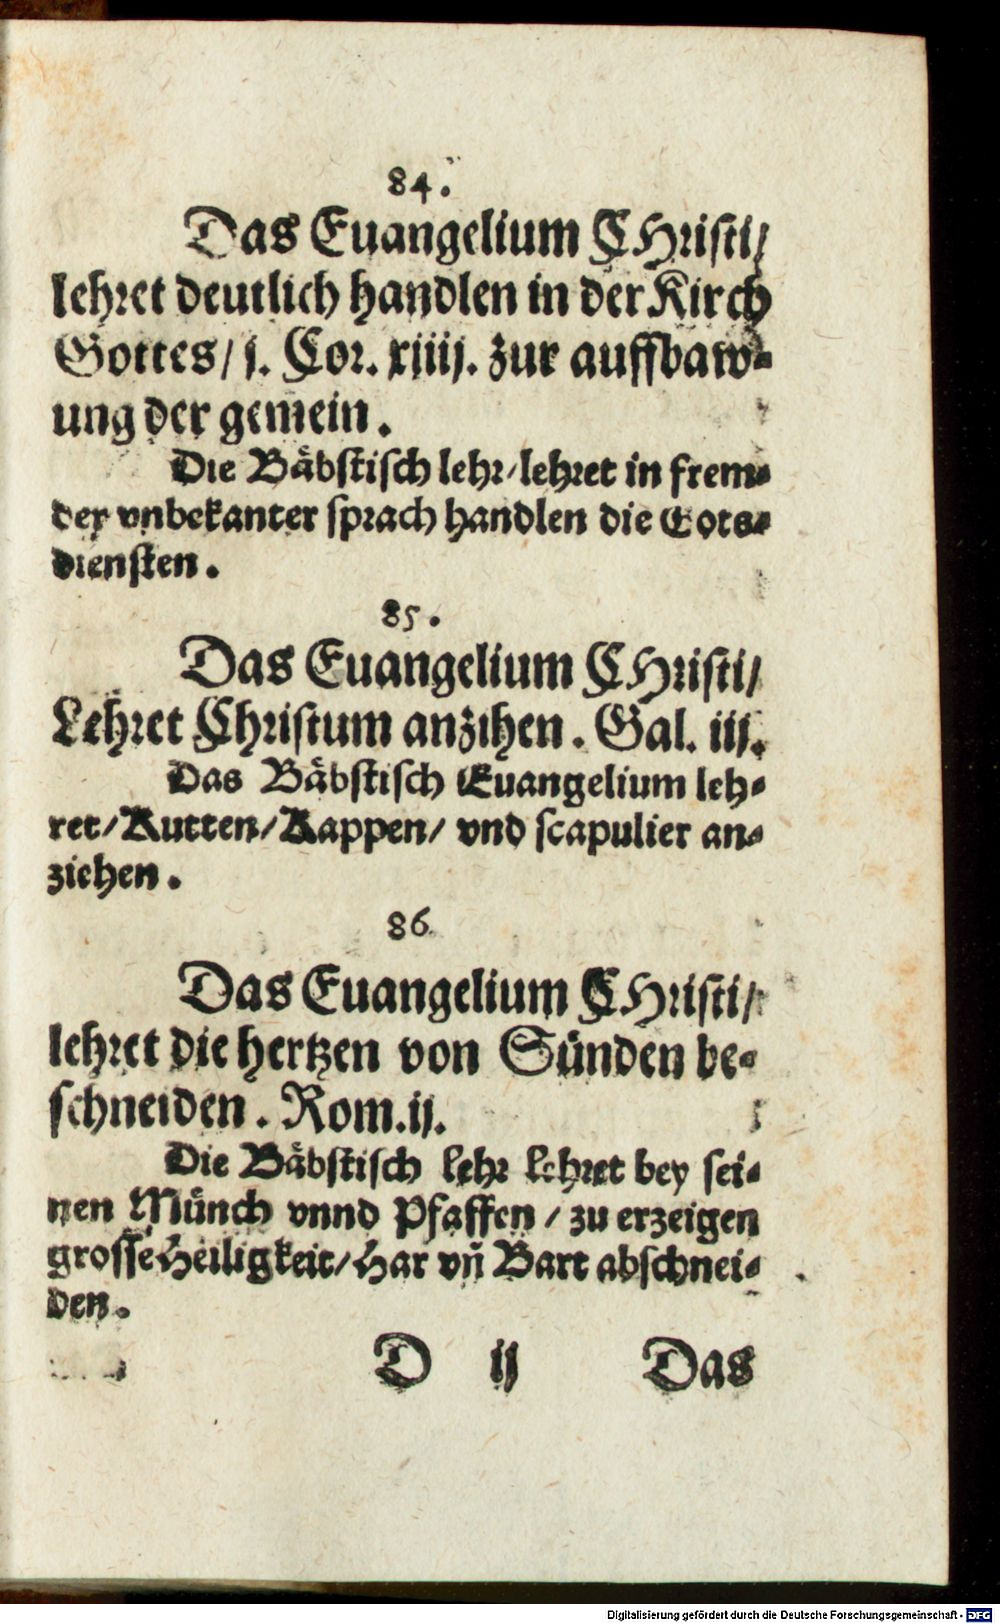 84.
Das Euangelium CHristi/
lehret deutlich handlen in der Kirch
Gottes/ j. Cor. xiiij. zur auffbaw-
ung der gemein.
Die Bäbstisch lehr/lehret in frem-
der vnbekanter sprach handlen die Gots-
diensten.
85.
Das Euangelium CHristi/
Lehret Christum anzihen. Gal. iij.
Das Bäbstisch Euangelium leh-
ret/Kutten/Kappen/ vnd scapulier an-
ziehen.
86
Das Euangelium CHristi/
lehret die hertzen von Sünden be-
schneiden. Rom.ij.
Die Bäbstisch lehr lehret bey sei-
nen Münch vnnd Pfaffen/ zu erzeigen
grosse Heiligkeit/Har vñ Bart abschnei-
den.
D ij Das
Digitalisierung gefördert durch die Deutsche Forschungsgemeinschaft - DFG